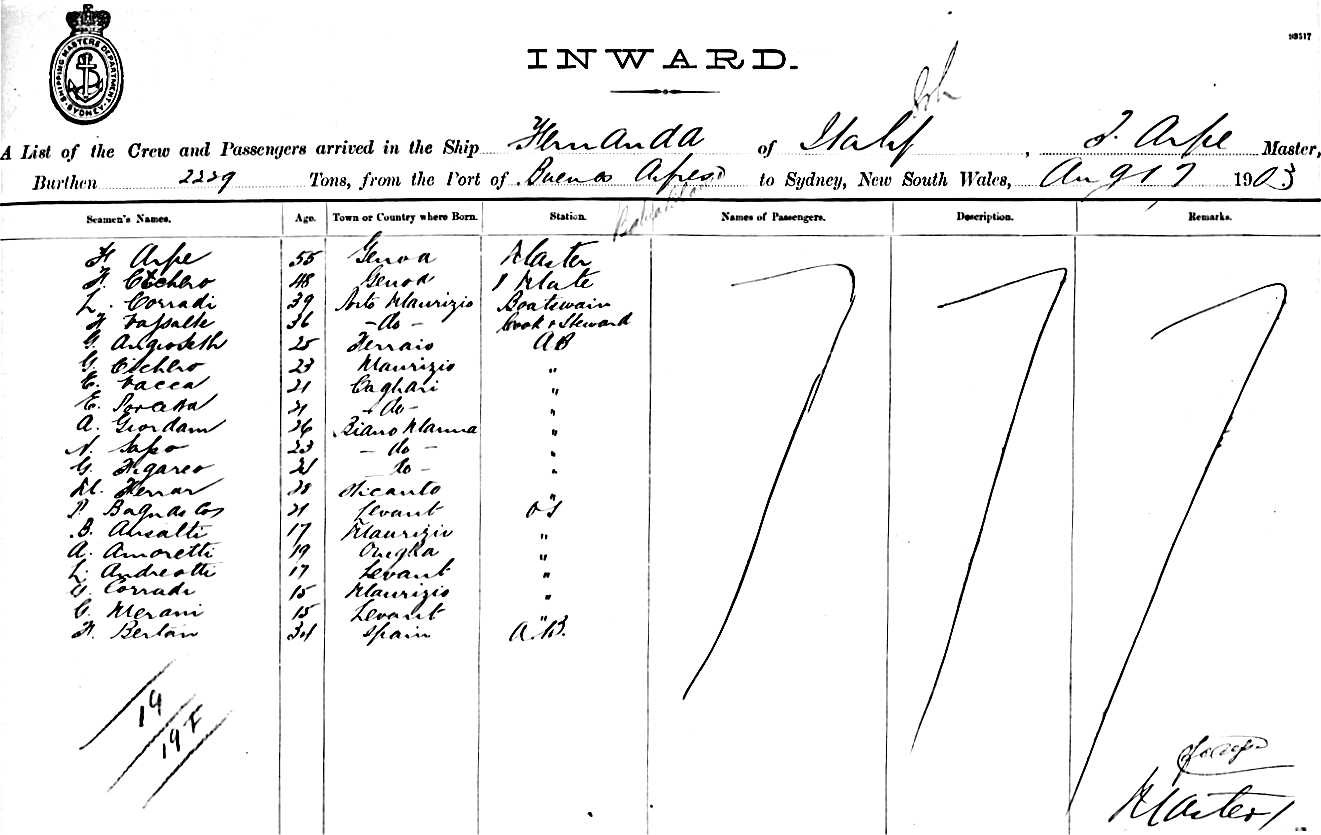 SHIPPING MASTERS DEPARTMENT SYDNEY
93517
INWARD.
A List of the Crew and Passengers arrived in the Ship Fernanda of Italy, F. Arpe Master,
Burthen 2229 Tons, from the Port of Buenos Ayres to Sydney, New South Wales, Aug 17 1903
Seamen's Names. Age. Town or Country where Born. Station. Names of Passengers. Description. Remarks.
F Arpe 55 Genoa Master
F. Cichero 48 Genoa 1 Mate
L. Corradi 39 Porto Maurizio Boatswain
F 36 - do - Cook & Steward
G. 25 Ferraio AB
G. Cichero 23 Maurizio "
E. Vacca 21 Cagliari "
E. 21 - do - "
A. Giordam 26 "
N. 23 - do - "
G. Figareo 21 - do - "
M. Ferrar 28 "
P. 21 Levant OS
B. Ansalti 17 Maurizio "
A. Amoretti 19 "
L. Andreotti 17 Levant "
G. Corradi 15 Maurizio "
G. Merani 15 Levant "
F. Bertan 34 Spain A.B.
19
19 F
Master